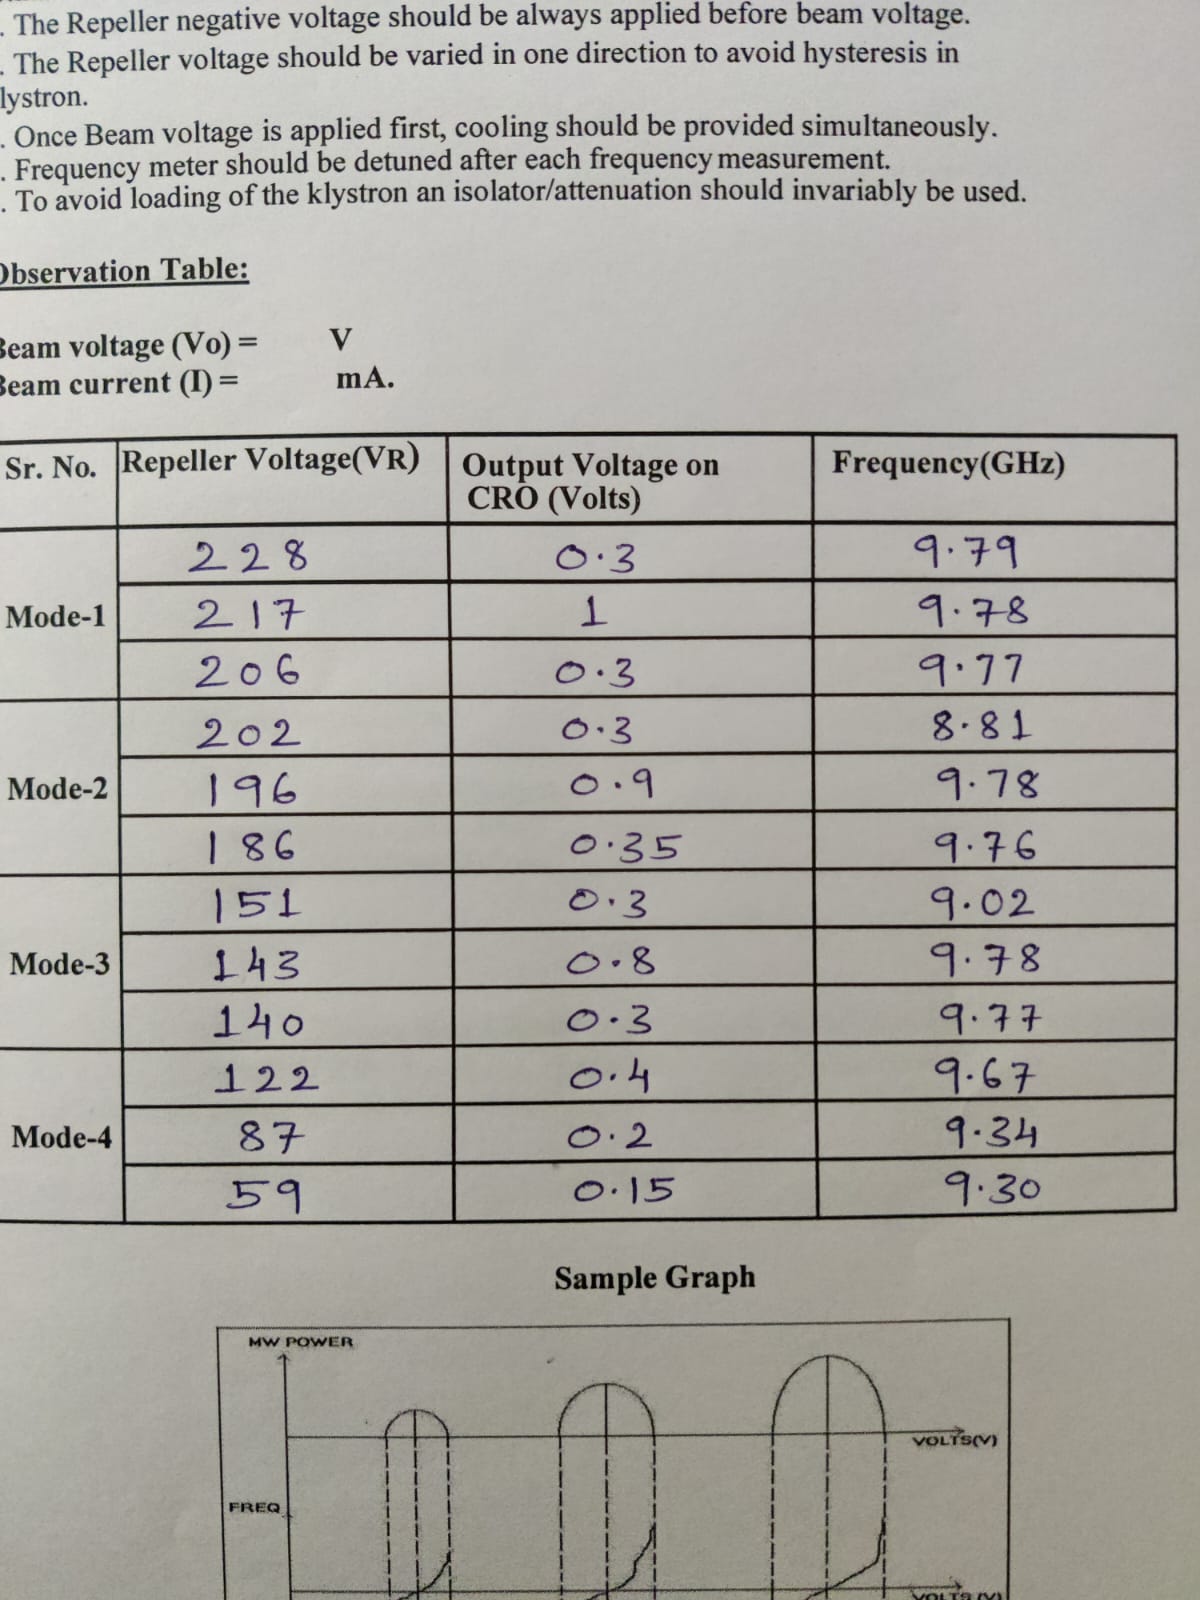 . The Repeller negative voltage should be always applied before beam voltage.
. The Repeller voltage should be varied in one direction to avoid hysteresis in
lystron.
. Once Beam voltage is applied first, cooling should be provided simultaneously.
. Frequency meter should be detuned after each frequency measurement.
. To avoid loading of the klystron an isolator/attenuation should invariably be used.
Observation Table:
Beam voltage (Vo) = V
Beam current (I) = mA.
Sr. No. Repeller Voltage(VR) Output Voltage on CRO (Volts) Frequency(GHz)
228 0.3 9.79
Mode-1 217 1 9.78
206 0.3 9.77
202 0.3 8.81
Mode-2 196 0.9 9.78
186 0.35 9.76
151 0.3 9.02
Mode-3 143 0.8 9.78
140 0.3 9.77
122 0.4 9.67
Mode-4 87 0.2 9.34
59 0.15 9.30
Sample Graph
MW POWER
VOLTS(V)
FREQ
VOLTS (V)